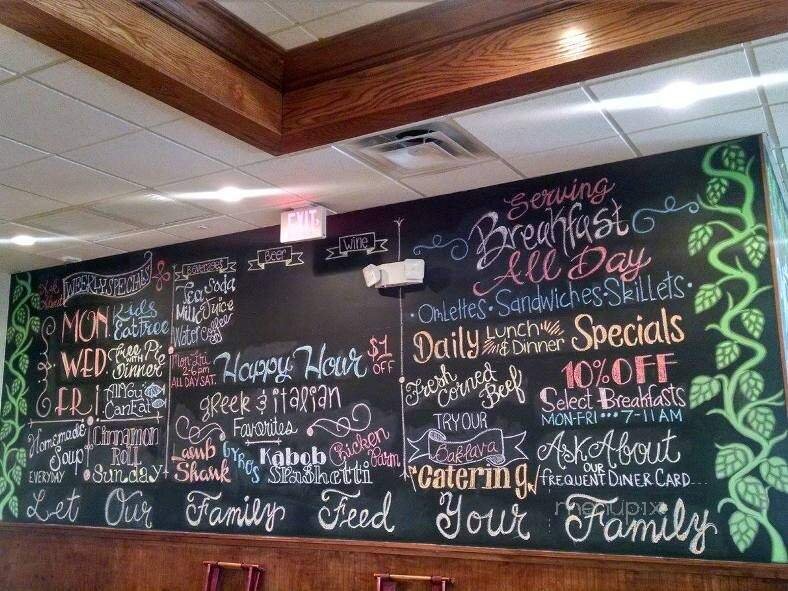 WEEKLY SPECIALS
MON. Kids Eat Free
WED. Free Pie WITH Dinner
FRI. All You Can Eat
Homemade Soup EVERYDAY
Cinnamon Roll Sunday
BEVERAGES
Tea Soda
Milk Juice
Water Coffee
Beer
Wine
MON-FRI 2-6 PM ALL DAY SAT.
Happy Hour
$1 OFF
Greek & Italian
Favorites
Lamb Shank
Gyros
Kabob
Spaghetti
Chicken Parm
EXIT
Serving
Breakfast
All Day
• Omlettes • Sandwiches • Skillets •
Daily Lunch & Dinner Specials
Fresh Corned Beef
TRY OUR
Baklava
Catering
10% OFF
Select Breakfasts
MON-FRI ••• 7-11 AM
Ask About
OUR
FREQUENT DINER CARD...
Let Our Family Feed Your Family
menupix